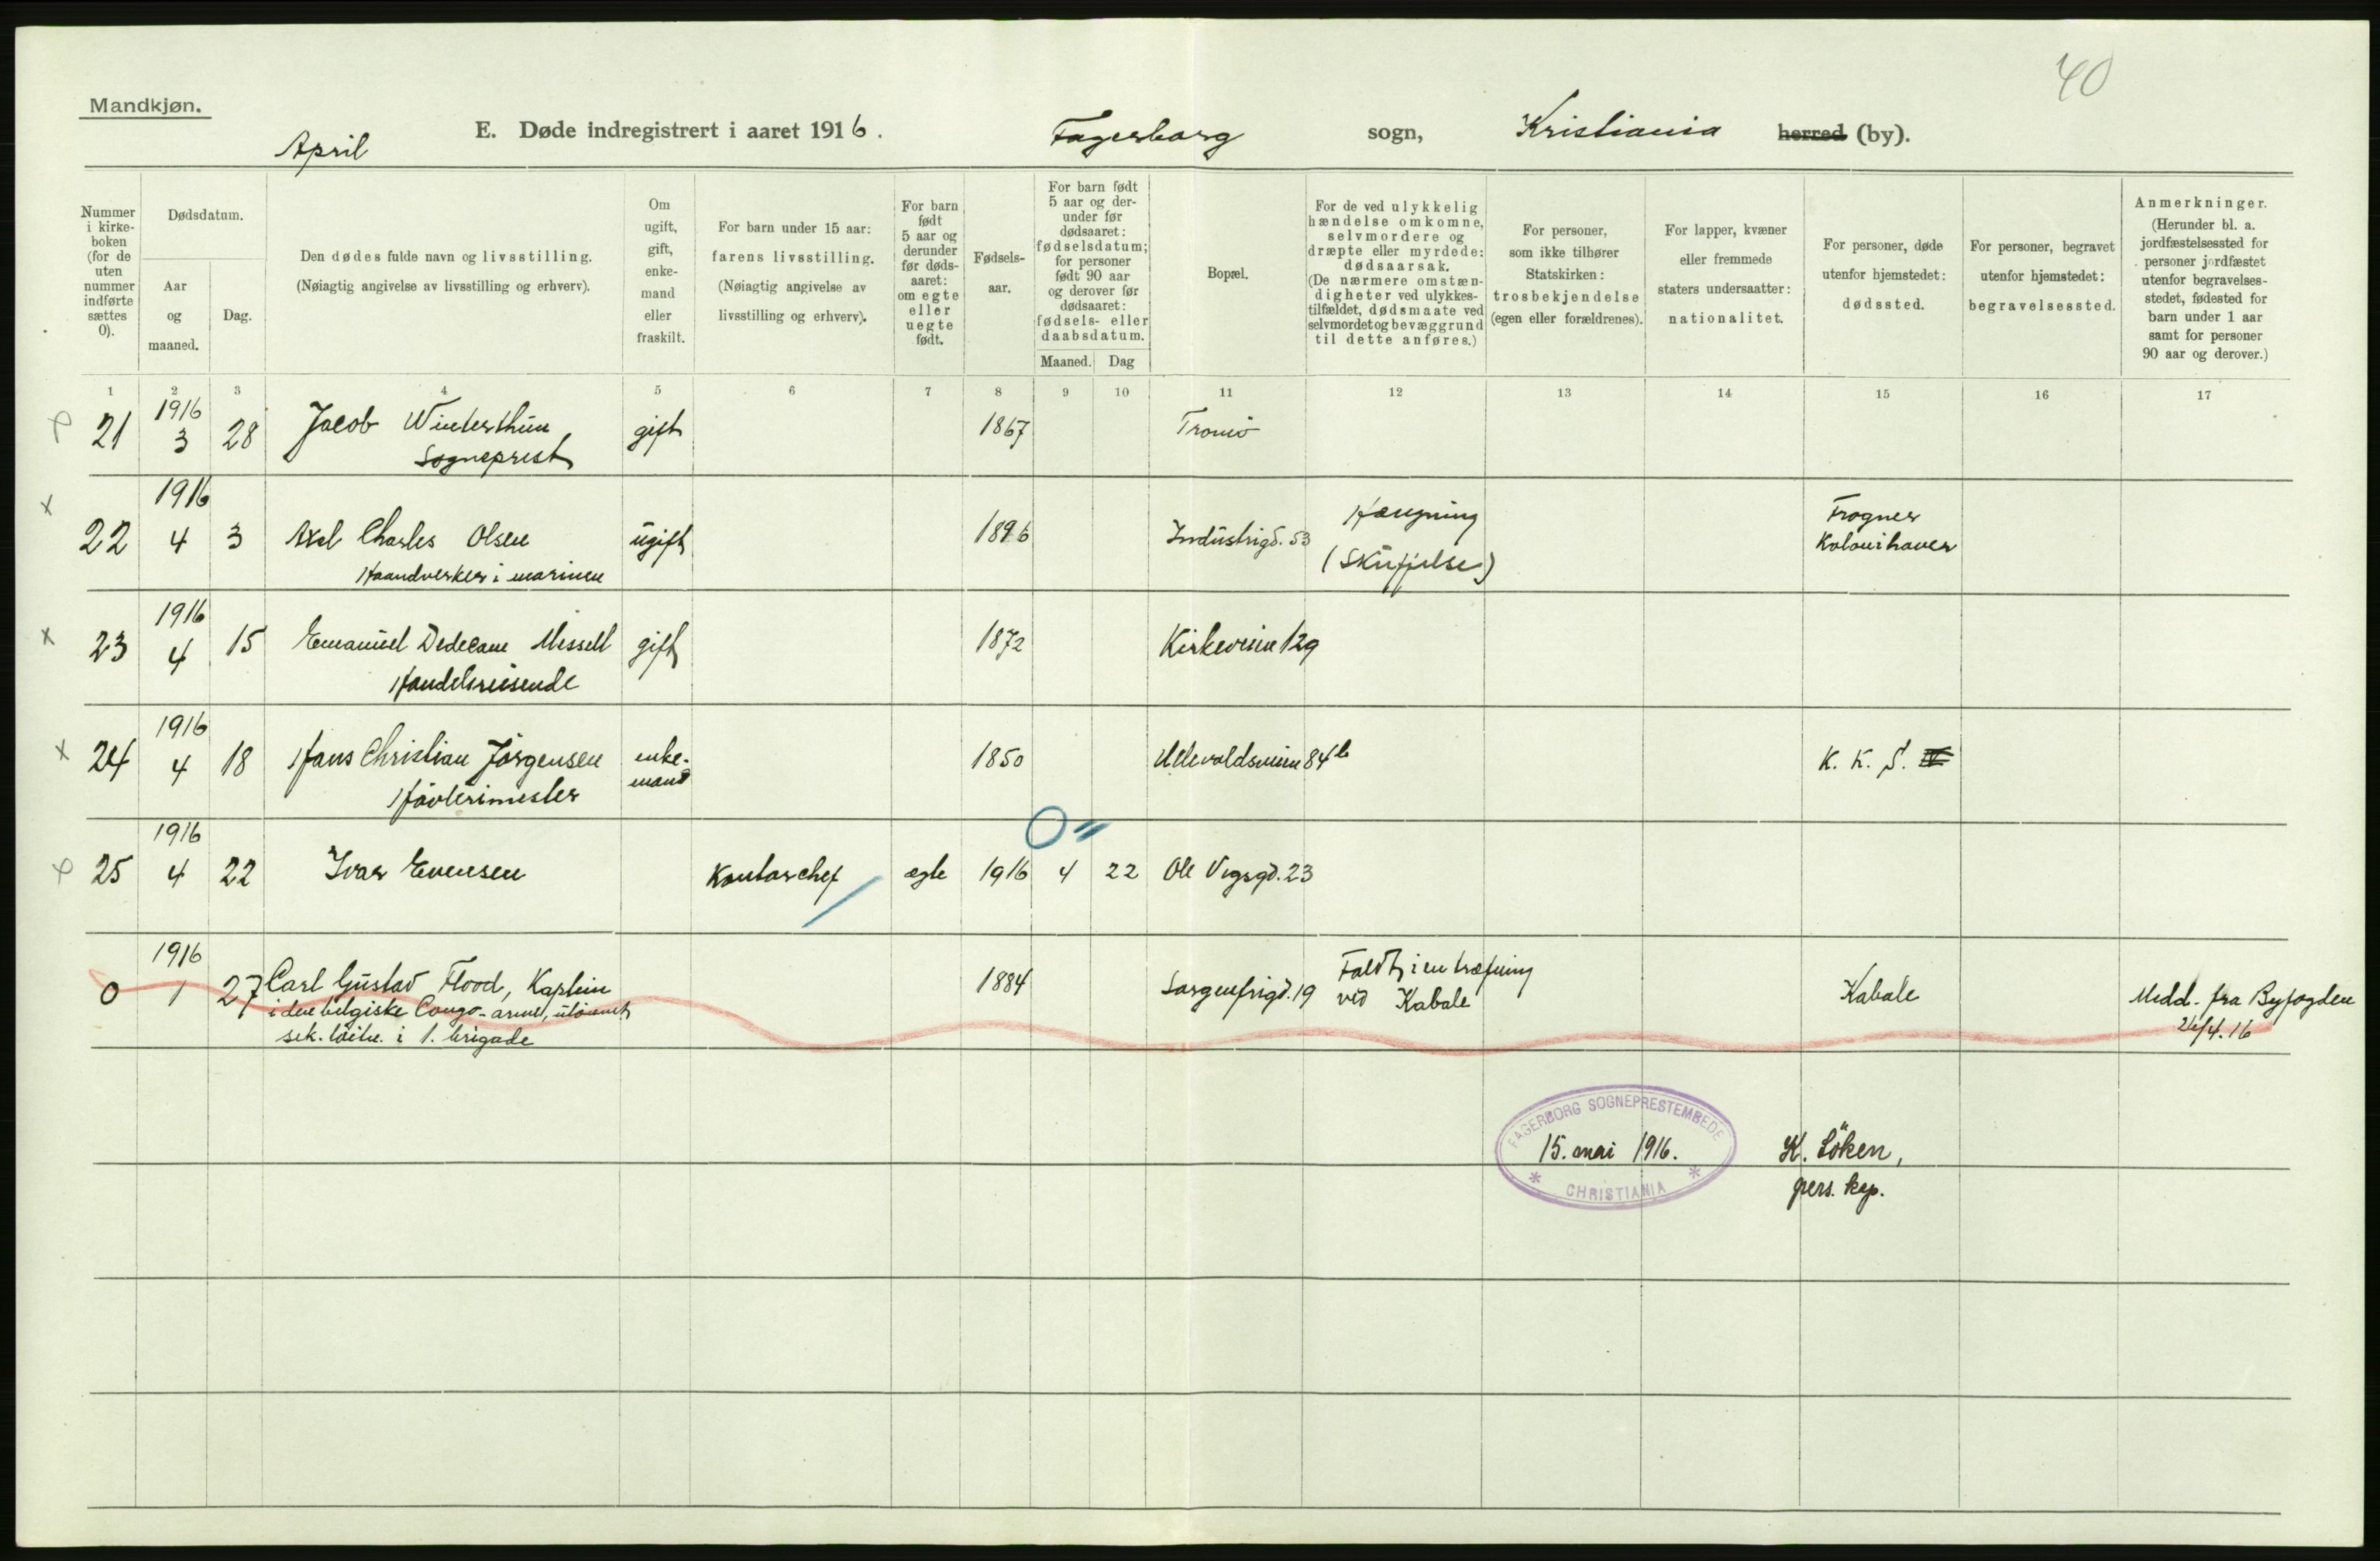 40
Mandkjøn.
April
E. Døde indregistrert i aaret 1916.
Fagerborg sogn, Kristiania herred (by).
Nummer i kirke-boken (for de uten nummer indførte sættes 0).
Dødsdatum.
Aar og maaned.
Dag.
Den dødes fulde navn og livsstilling.
(Nøiagtig angivelse av livsstilling og erhverv).
Om ugift, gift, enke-mand eller fraskilt.
For barn under 15 aar:
farens livsstilling.
(Nøiagtig angivelse av
livsstilling og erhverv).
For barn født 5 aar og derunder før døds-aaret: om egte eller uegte født.
Fødsels-aar.
For barn født
5 aar og der-
under før
dødsaaret:
fødselsdatum;
for personer
født 90 aar
og derover før
dødsaaret:
fødsels- eller
daabsdatum.
Maaned. Dag
Bopæl.
For de ved ulykkelig
hændelse omkomne,
selvmordere og
dræpte eller myrdede:
dødsaarsak.
(De nærmere omstæn-
digheter ved ulykkes-
tilfældet, dødsmaate ved
selvmordet og bevæggrund
til dette anføres.)
For personer,
som ikke tilhører
Statskirken:
trosbekjendelse
(egen eller forældrenes).
For lapper, kvæner
eller fremmede
staters undersaatter:
nationalitet.
For personer, døde
utenfor hjemstedet:
dødssted.
For personer, begravet
utenfor hjemstedet:
begravelsessted.
Anmerkninger.
(Herunder bl. a.
jordfæstelsessted for
personer jordfæstet
utenfor begravelses-
stedet, fødested for
barn under 1 aar
samt for personer
90 aar og derover.)
1 2 3 4 5 6 7 8 9 10 11 12 13 14 15 16 17
1916
21 3 28 Jacob Winterthun gift 1867 Tromsö
Sogneprest
1916
Hængning
Frogner
22 4 3 Axel Charles Olsen ugift 1896 Industrigd. 53 Kolonihaver
Haandverker i marinen (Skuffelse)
1916
23 4 15 Emanuel Dedecam Missell gift 1872 Kirkeveien 129
Handelsreisende
1916
24 4 18 Hans Christian Jörgensen enke-mand 1850 Ullevoldsveien 84b K. K. S. IV
Hövlerimester
1916
25 4 22 Ivar Evensen Kontorchef egte 1916 4 22 Ole Vigsgd. 23
1916
0 1 27 Carl Gustav Flood, Kaptein 1884 Sorgenfrigd. 19 Faldt i en træfning ved Kabale Kabale Medd. fra Byfogden 26/4.16
i den belgiske Congo-armé, utönnet
sek. löitn. i 1. brigade
FAGERBORG SOGNEPRESTEMBEDE
15. mai 1916.
* CHRISTIANIA *
K. Söken,
pers. kap.